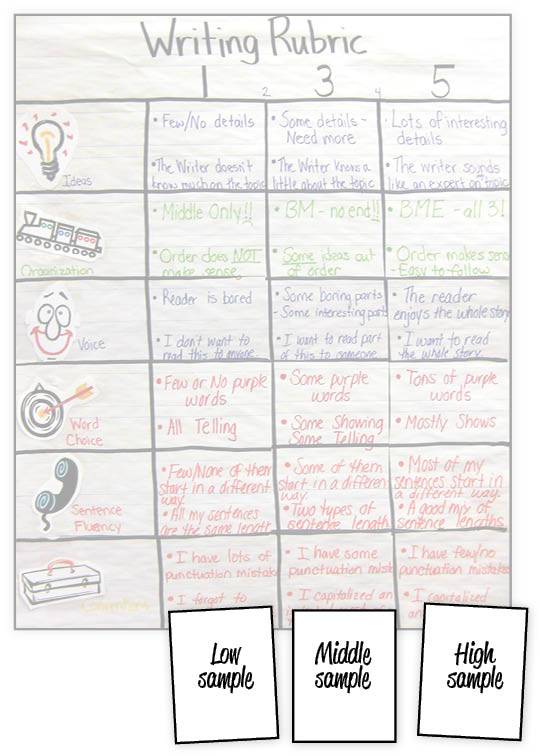 Writing Rubric
1 2 3 4 5
Ideas
• Few/No details
• The Writer doesn't
know much on the topic
• Some details -
Need more
• The Writer knows a
little about the topic
• Lots of interesting
details
• The writer sounds
like an expert on topic
Organization
• Middle Only!!
• Order does NOT
make sense
• BM - no end!!
• Some ideas out
of order
• BME - all 3!
• Order makes
- Easy to follow
Voice
• Reader is bored
• I don't want to
read this to
• Some boring parts
- Some interesting parts
• I want to read part
of this to someone
• The reader
enjoys the whole story
• I want to read
the whole story
Word
Choice
• Few or No purple
words
• All Telling
• Some purple
words
• Some Showing
Some Telling
• Tons of purple
words
• Mostly Shows
Sentence
Fluency
• Few/None of them
start in a different
way.
• All my sentences
are the same length
• Some of them
start in a different
way.
• Two types of
sentence length
• Most of my
sentences start in
a different way.
• A good mix of
sentence lengths
Conventions
• I have lots of
punctuation
• I forgot to
• I have some
punctuation
• I capitalized
• I have few/no
punctuation mistakes
• I capitalized
Low
sample
Middle
sample
High
sample